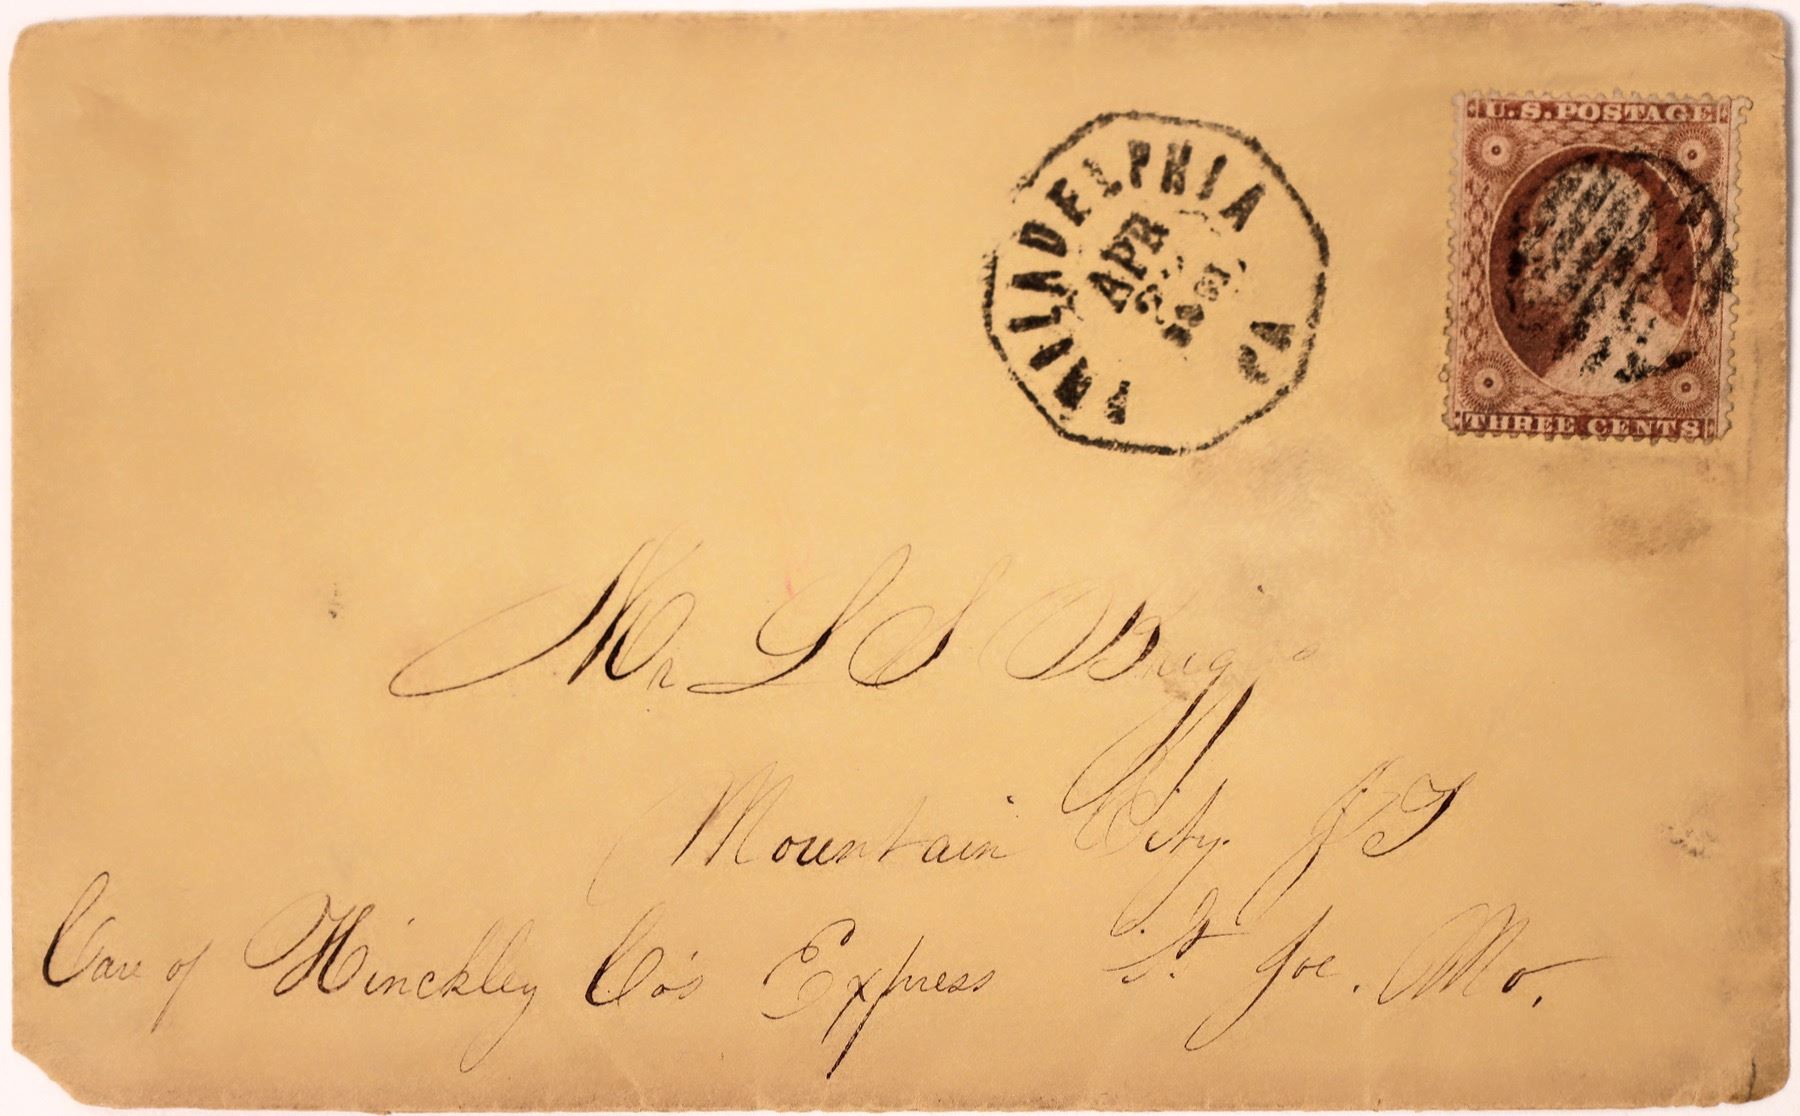 U.S. POSTAGE
PHILADELPHIA PA
APR
THREE CENTS
Mr L S Briggs
Mountain City. J T
Care of Hinckley Co's Express St. Joe. Mo.